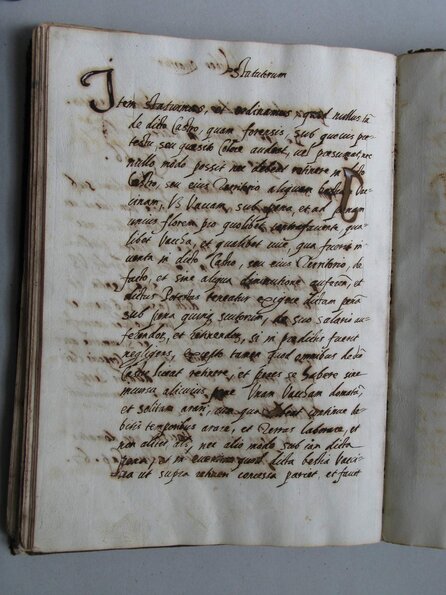 Statutorum
Item statuimus, et ordinamus quod nullus, ta
de dicto Castro, quam forensis, sub quovis pre
textu, seu quaesito colore audeat, vel presumat, nec
nullo modo possit nec debeat retinere in dicto
Castro, seu eius Territorio aliquam bestiam Vac
cinam, Vs Vaccam, sub pena, et ad penam
unius floreni pro quolibet contrafaciente, qua
libet Vacca, et qualibet vice, qua fuerit in
venta in dicto Castro, seu eius Territorio, de
facto, et sine aliqua diminutione auferen, et
dictus Potestas teneatur exigere dictam penã
sub pena quinq scutorum, de suo salario re
tinendor, et si in predictis fuerit
negligens, tamen quod omnibus de
Castro liceat retinere, et penes se habere sine
incursu alicuius pene Unam Vaccam domitã,
et solitam arare, cum qua debeat continue de
bitis temporibus arare, et Terras laborare, et
non aliter, nec alio modo sub iam dicta
pena, et in eventum quod dicta bestia Vacci
na ut supra retineri concessa pariet, et faciet